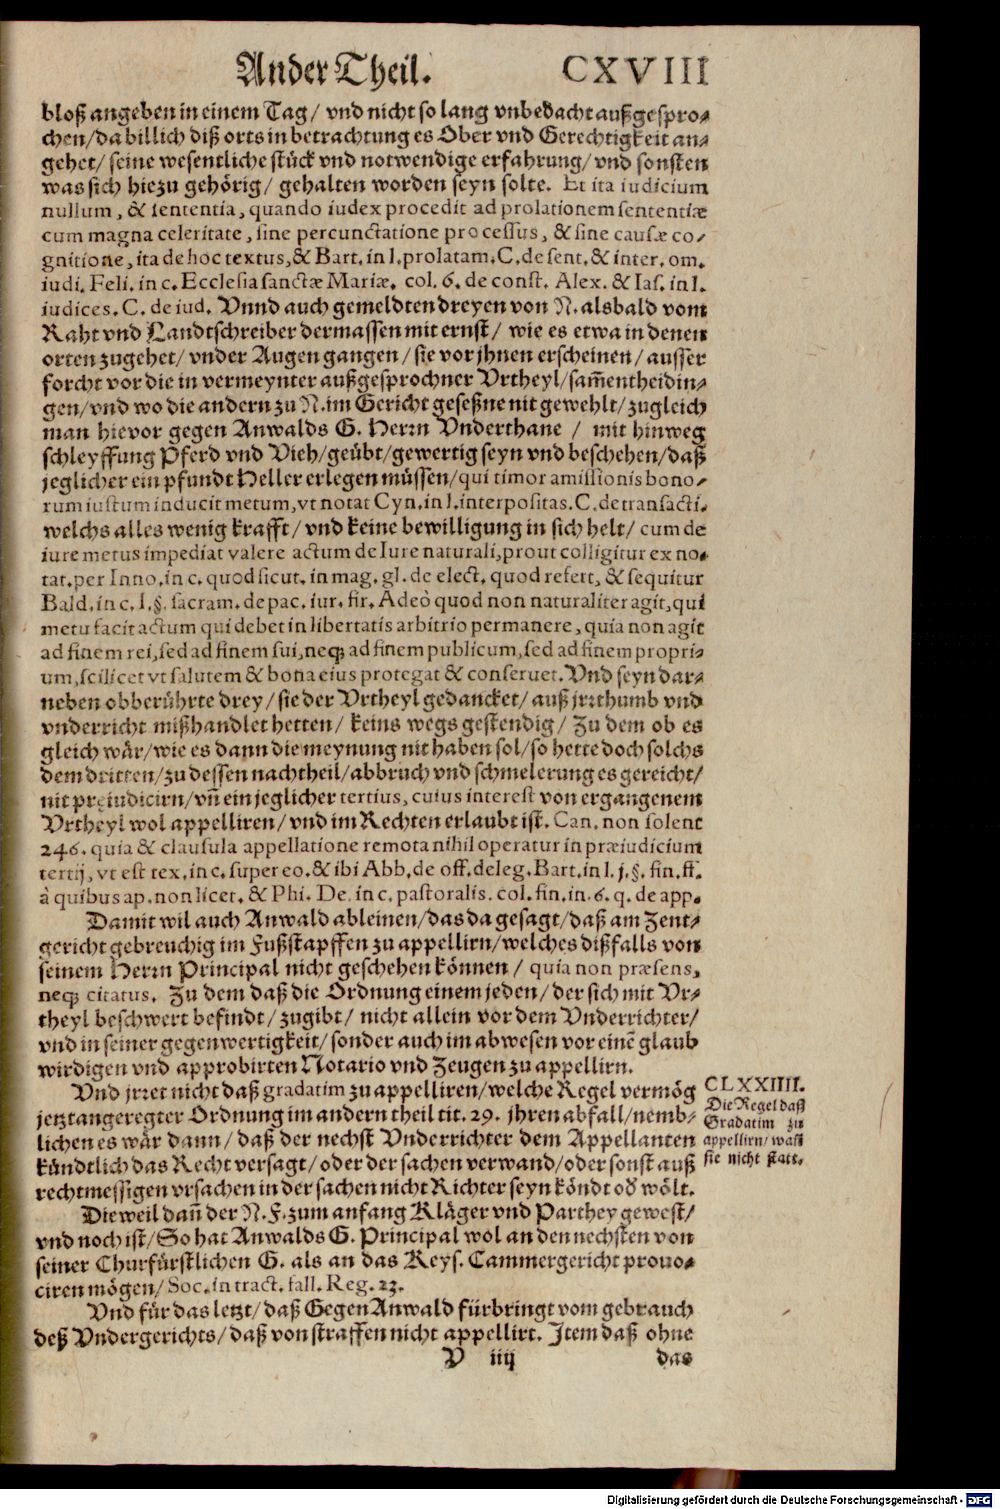 Ander Theil. CXVIII
bloß angeben in einem Tag/ vnd nicht so lang vnbedacht außgespro-
chen/ da billich diß orts in betrachtung es Ober vnd Gerechtigkeit an-
gehet/ seine wesentliche stück vnd notwendige erfahrung/ vnd sonsten
was sich hiezu gehörig/ gehalten worden seyn solte. Et ita iudicium
nullum, & sententia, quando iudex procedit ad prolationem sententiæ
cum magna celeritate, sine percunctatione processus, & sine causæ co-
gnitione, ita de hoc textus, & Bart. in l. prolatam. C. de sent. & inter. om.
iudi. Feli. in c. Ecclesia sanctæ Mariæ. col. 6. de const. Alex. & Ias. in l.
iudices. C. de iud. Vnnd auch gemeldten dreyen von N. alsbald vom
Raht vnd Landtschreiber dermassen mit ernst/ wie es etwa in denen
orten zugehet/ vnder Augen gangen/ sie vor jhnen erscheinen/ ausser
forcht vor die in vermeynter außgesprochner Vrtheyl/ sam̃entheidin-
gen/ vnd wo die andern zu N. im Gericht geseßne nit gewehlt/ zugleich
man hievor gegen Anwalds G. Herrn Vnderthane/ mit hinweg
schleyffung Pferd vnd Vieh/ geübt/ gewertig seyn vnd beschehen/ daß
jeglicher ein pfundt Heller erlegen müssen/ qui timor amissionis bono-
rum iustum inducit metum, vt notat Cyn. in l. interpositas. C. de transacti.
welchs alles wenig krafft/ vnd keine bewilligung in sich helt/ cum de
iure metus impediat valere actum de Iure naturali, prout colligitur ex no-
tat. per Inno. in c. quod sicut. in mag. gl. de elect. quod refert, & sequitur
Bald. in c. 1. §. sacram. de pac. iur. fir. Adeò quod non naturaliter agit, qui
metu facit actum qui debet in libertatis arbitrio permanere, quia non agit
ad finem rei, sed ad finem sui, neq; ad finem publicum, sed ad finem propri-
um, scilicet vt salutem & bona eius protegat & conseruet. Vnd seyn dar-
neben obberührte drey/ sie der Vrtheyl gedancket/ auß jrrthumb vnd
vnderricht mißhandlet hetten/ keins wegs gestendig/ Zu dem ob es
gleich wär/ wie es dann die meynung nit haben sol/ so hette doch solchs
dem dritten/ zu dessen nachtheil/ abbruch vnd schmelerung es gereicht/
nit preiudicirn/ vñ ein jeglicher tertius, cuius interest von ergangenem
Vrtheyl wol appelliren/ vnd im Rechten erlaubt ist. Can. non solent
246. quia & clausula appellatione remota nihil operatur in præiudicium
tertij, vt est tex. in c. super eo. & ibi Abb. de off. deleg. Bart. in l. j. §. fin. ff.
à quibus ap. non licet. & Phi. De. in c. pastoralis. col. fin. in. 6. q. de app.
Damit wil auch Anwald ableinen/ das da gesagt/ daß am Zent-
gericht gebreuchig im Fußstapffen zu appellirn/ welches dißfalls von
seinem Herrn Principal nicht geschehen können/ quia non præsens,
neq; citatus. Zu dem daß die Ordnung einem jeden/ der sich mit Vr-
theyl beschwert befindt/ zugibt/ nicht allein vor dem Vnderrichter/
vnd in seiner gegenwertigkeit/ sonder auch im abwesen vor einē glaub
wirdigen vnd approbirten Notario vnd Zeugen zu appellirn.
Vnd jrret nicht daß gradatim zu appelliren/ welche Regel vermög
jetzt angeregter Ordnung im andern theil tit. 29. jhren abfall/ nemb-
lichen es wär dann/ daß der nechst Vnderrichter dem Appellanten
kündtlich das Recht versagt/ oder der sachen verwand/ oder sonst auß
rechtmessigen vrsachen in der sachen nicht Richter seyn köndt oď wölt.
CLXXIIII.
Die Regel daß
Gradatim zu
appellirn/ wañ
sie nicht statt.
Dieweil dañ der N. F. zum anfang Kläger vnd Parthey gewest/
vnd noch ist/ So hat Anwalds G. Principal wol an den nechsten von
seiner Churfürstlichen G. als an das Keys. Cammergericht prouo-
ciren mögen/ Soc. in tract. fall. Reg. 23.
Vnd für das letzt/ daß Gegen Anwald fürbringt vom gebrauch
deß Vndergerichts/ daß von straffen nicht appellirt. Item daß ohne
V iiij das
Digitalisierung gefördert durch die Deutsche Forschungsgemeinschaft - DFG